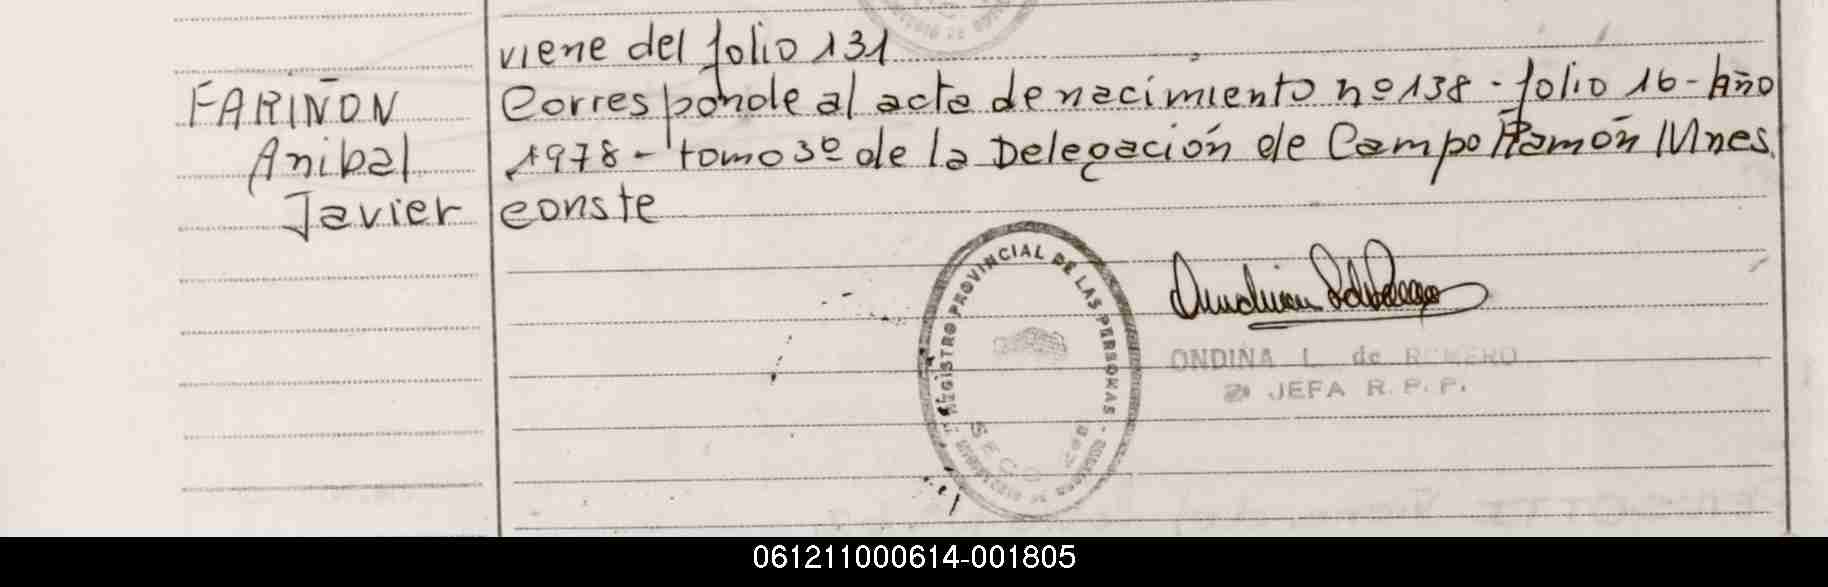 viene del folio 131
FARIÑON
Corresponde al acta de nacimiento nº 138 - folio 16 - Año
Anibal
1978 - tomo 3º de la Delegación de Campo Ramón Mnes.
Javier
conste
REGISTRO PROVINCIAL DE LAS PERSONAS
ONDINA L. de ROMERO
JEFA R. P. P.
061211000614-001805